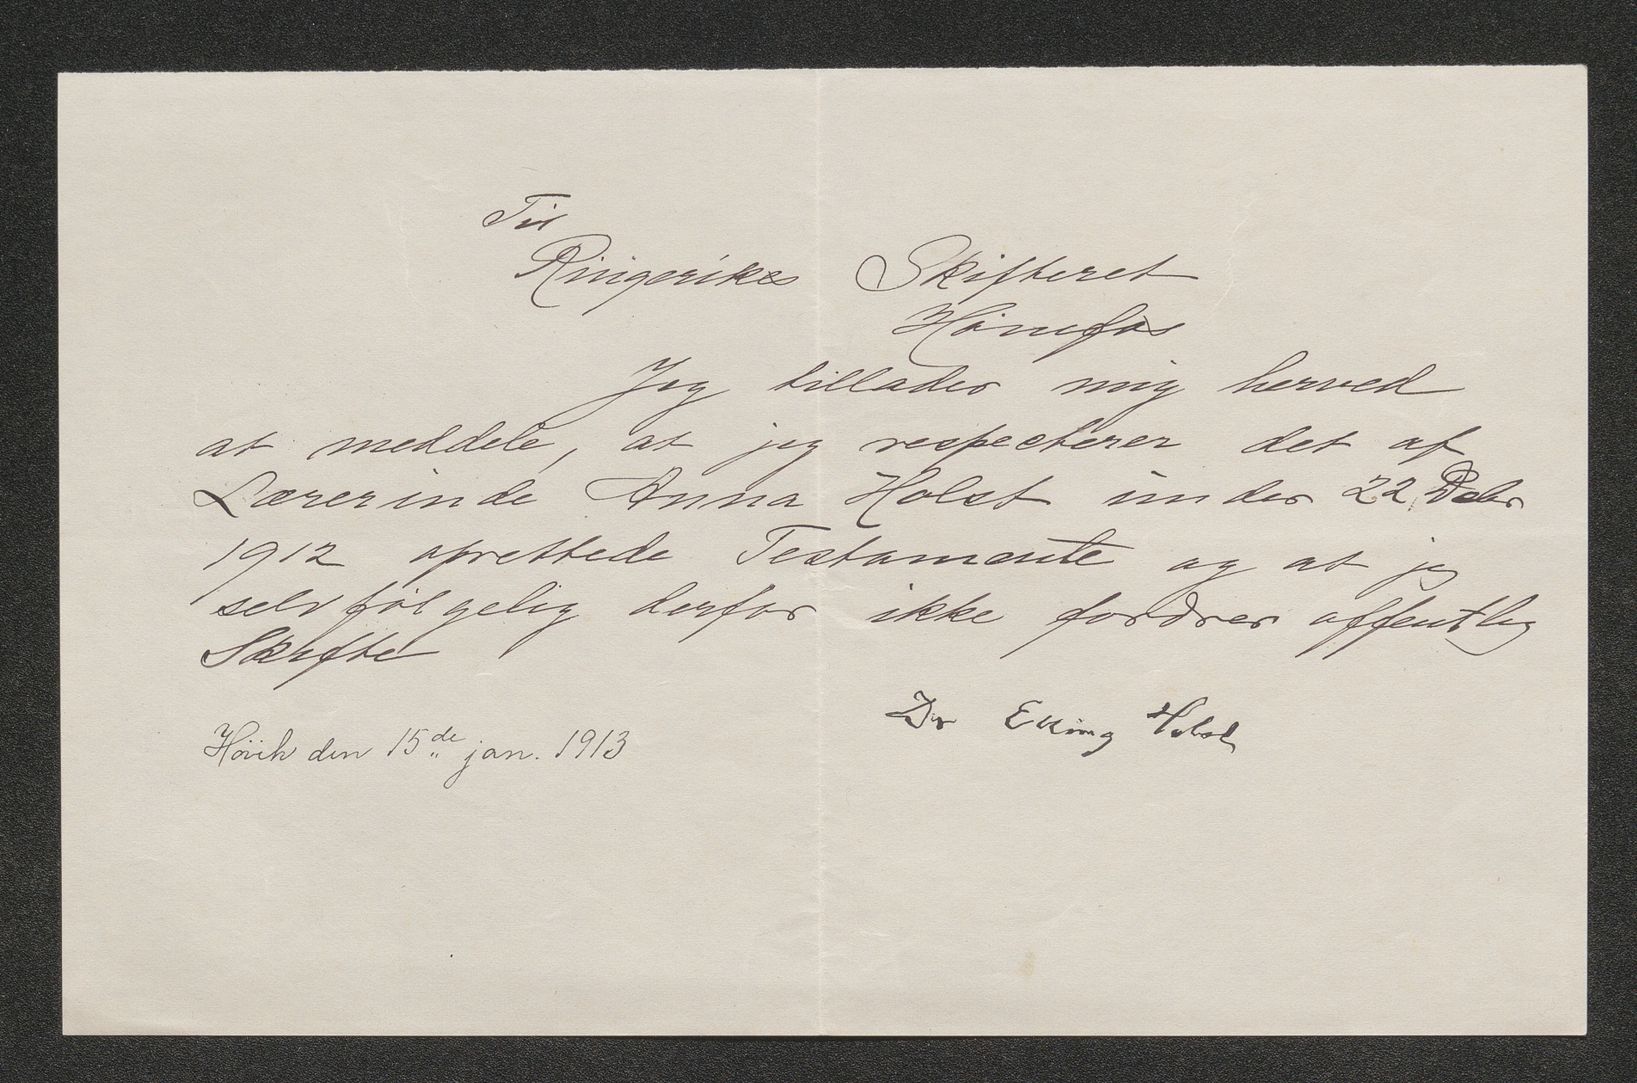 Til
Ringerikes Skifteret
Hønefos
Jeg tillader mig herved
at meddele, at jeg respecterer det af
Lærerinde Anna Holst under 22 Debr
1912 oprettede Testamente og at jeg
selvfølgelig derfor ikke fordrer offentlig
Skifte
Dr Holst
Hövik den 15de jan. 1913